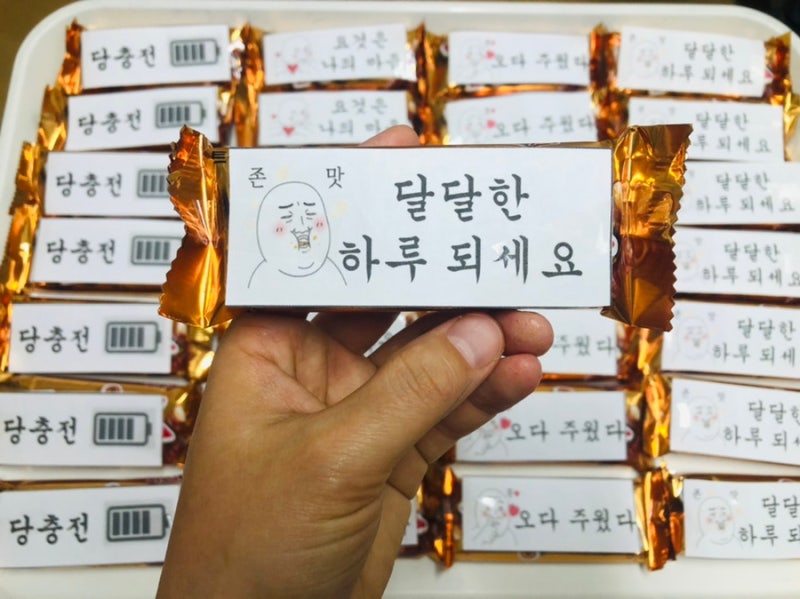 당충전
요것은
나의
오다 주웠다
달달한
하루 되세요
당충전
요것은
나의
오다 주웠다
달달한
하루 되세요
존 맛
달달한
하루 되세요
당충전
달달한
하루 되세요
당충전
달달한
하루 되세요
당충전
주웠다
달달한
하루 되세
당충전
오다 주웠다
달달한
하루 되세
당충전
오다 주웠다
존 맛
달달
하루 되